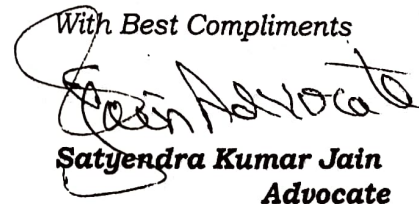 With Best Compliments
SJain Advocate
Satyendra Kumar Jain
Advocate